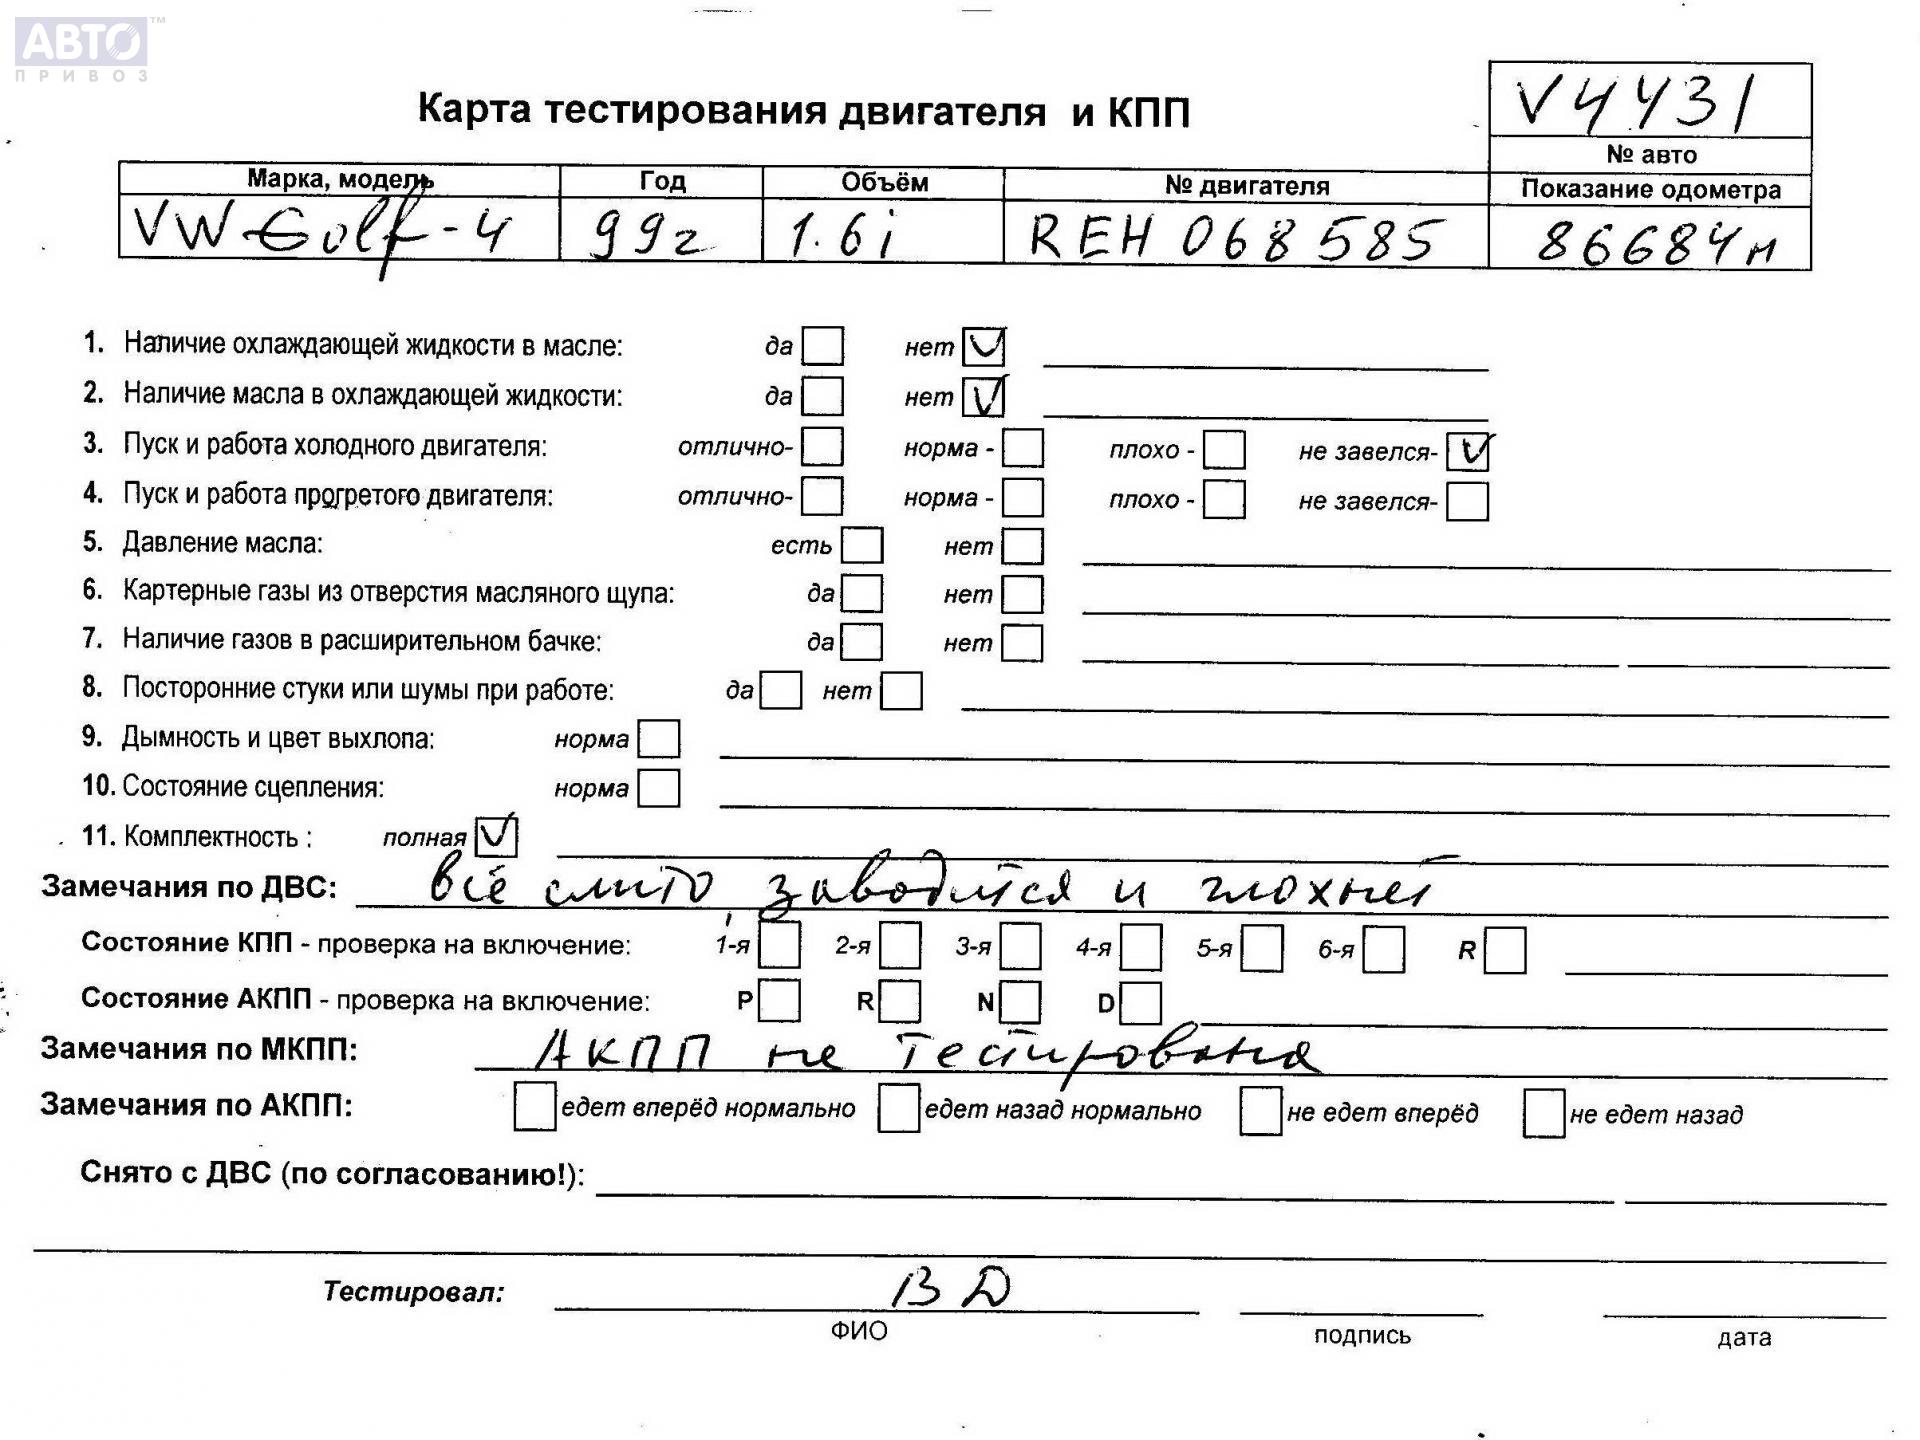 АВТО™
ПРИВОЗ
V4431
Карта тестирования двигателя и КПП
№ авто
Марка, модель Год Объём № двигателя Показание одометра
VW Golf-4 99г 1.6i REH 068585 86684м
1. Наличие охлаждающей жидкости в масле: да нет V
2. Наличие масла в охлаждающей жидкости: да нет V
3. Пуск и работа холодного двигателя: отлично- норма - плохо - не завелся- V
4. Пуск и работа прогретого двигателя: отлично- норма - плохо - не завелся-
5. Давление масла: есть нет
6. Картерные газы из отверстия масляного щупа: да нет
7. Наличие газов в расширительном бачке: да нет
8. Посторонние стуки или шумы при работе: да нет
9. Дымность и цвет выхлопа: норма
10. Состояние сцепления: норма
11. Комплектность : полная V
Замечания по ДВС: всё слито заводится и глохнет
Состояние КПП - проверка на включение: 1-я 2-я 3-я 4-я 5-я 6-я R
Состояние АКПП - проверка на включение: P R N D
Замечания по МКПП: АКПП не тестирована
Замечания по АКПП: едет вперёд нормально едет назад нормально не едет вперёд не едет назад
Снято с ДВС (по согласованию!):
Тестировал: ВД
ФИО подпись дата